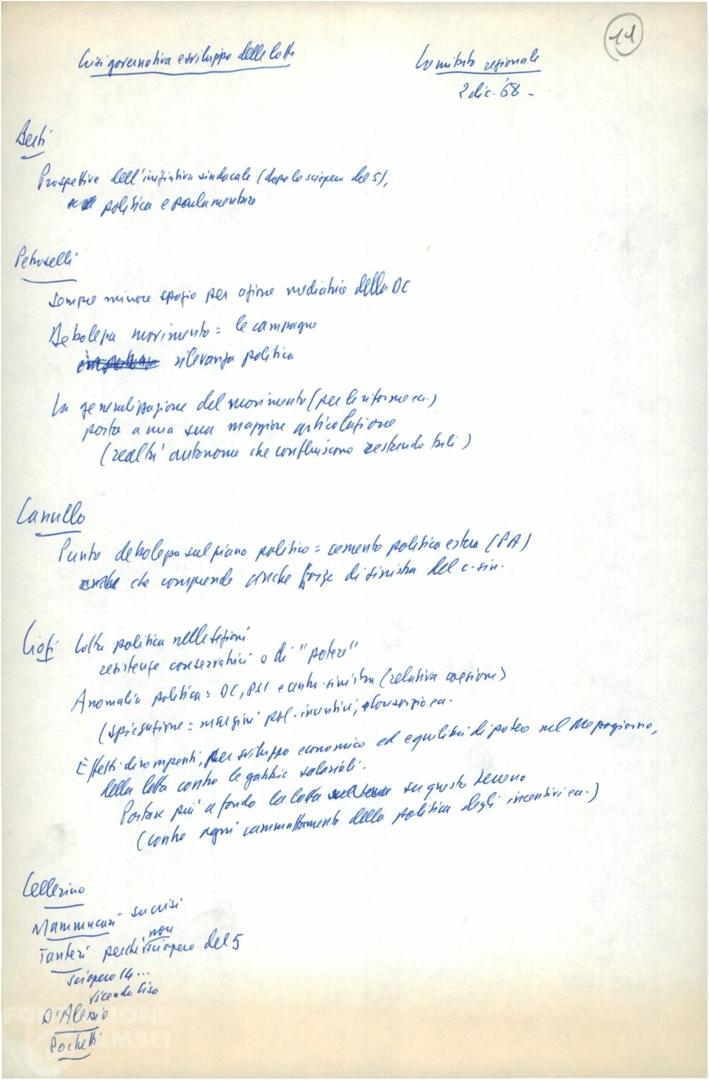 14
Crisi governativa e sviluppo delle lotte
Comitato regionale
2 dic. '68 -
Berti
Prospettive dell'iniziativa sindacale (dopo lo sciopero del 5),
politica e parlamentare
Petroselli
sempre minore spazio per azione mediatrice della DC
Debolezza movimento = le campagne
rilevanza politica
La generalizzazione del movimento (per le riforme ecc.)
porta a una sua maggiore articolazione
(realtà autonome che confluiscono restando tali)
Canullo
Punto debolezza sul piano politico = cemento politica estera (PA)
che comprende anche forze di sinistra del c-sin.
Ciofi Lotta politica nelle sezioni
resistenze conservatrici o di "potere"
Anomalia politica = DC, PSI e centro-sinistra (relativa coesione)
(spiegazione = margini pol. incentivi, ecc.
Effetti dirompenti, per sviluppo economico ed equilibri di potere nel Mezzogiorno,
della lotta contro le gabbie salariali.
Portare più a fondo la lotta su questo terreno
(contro ogni della politica degli incentivi ecc.)
Cellerino
Mammucari su crisi
perché non sciopero del 5
sciopero 14...
vicenda
D'Alessio
Pochetti
FONDAZIONE
GRAMSCI